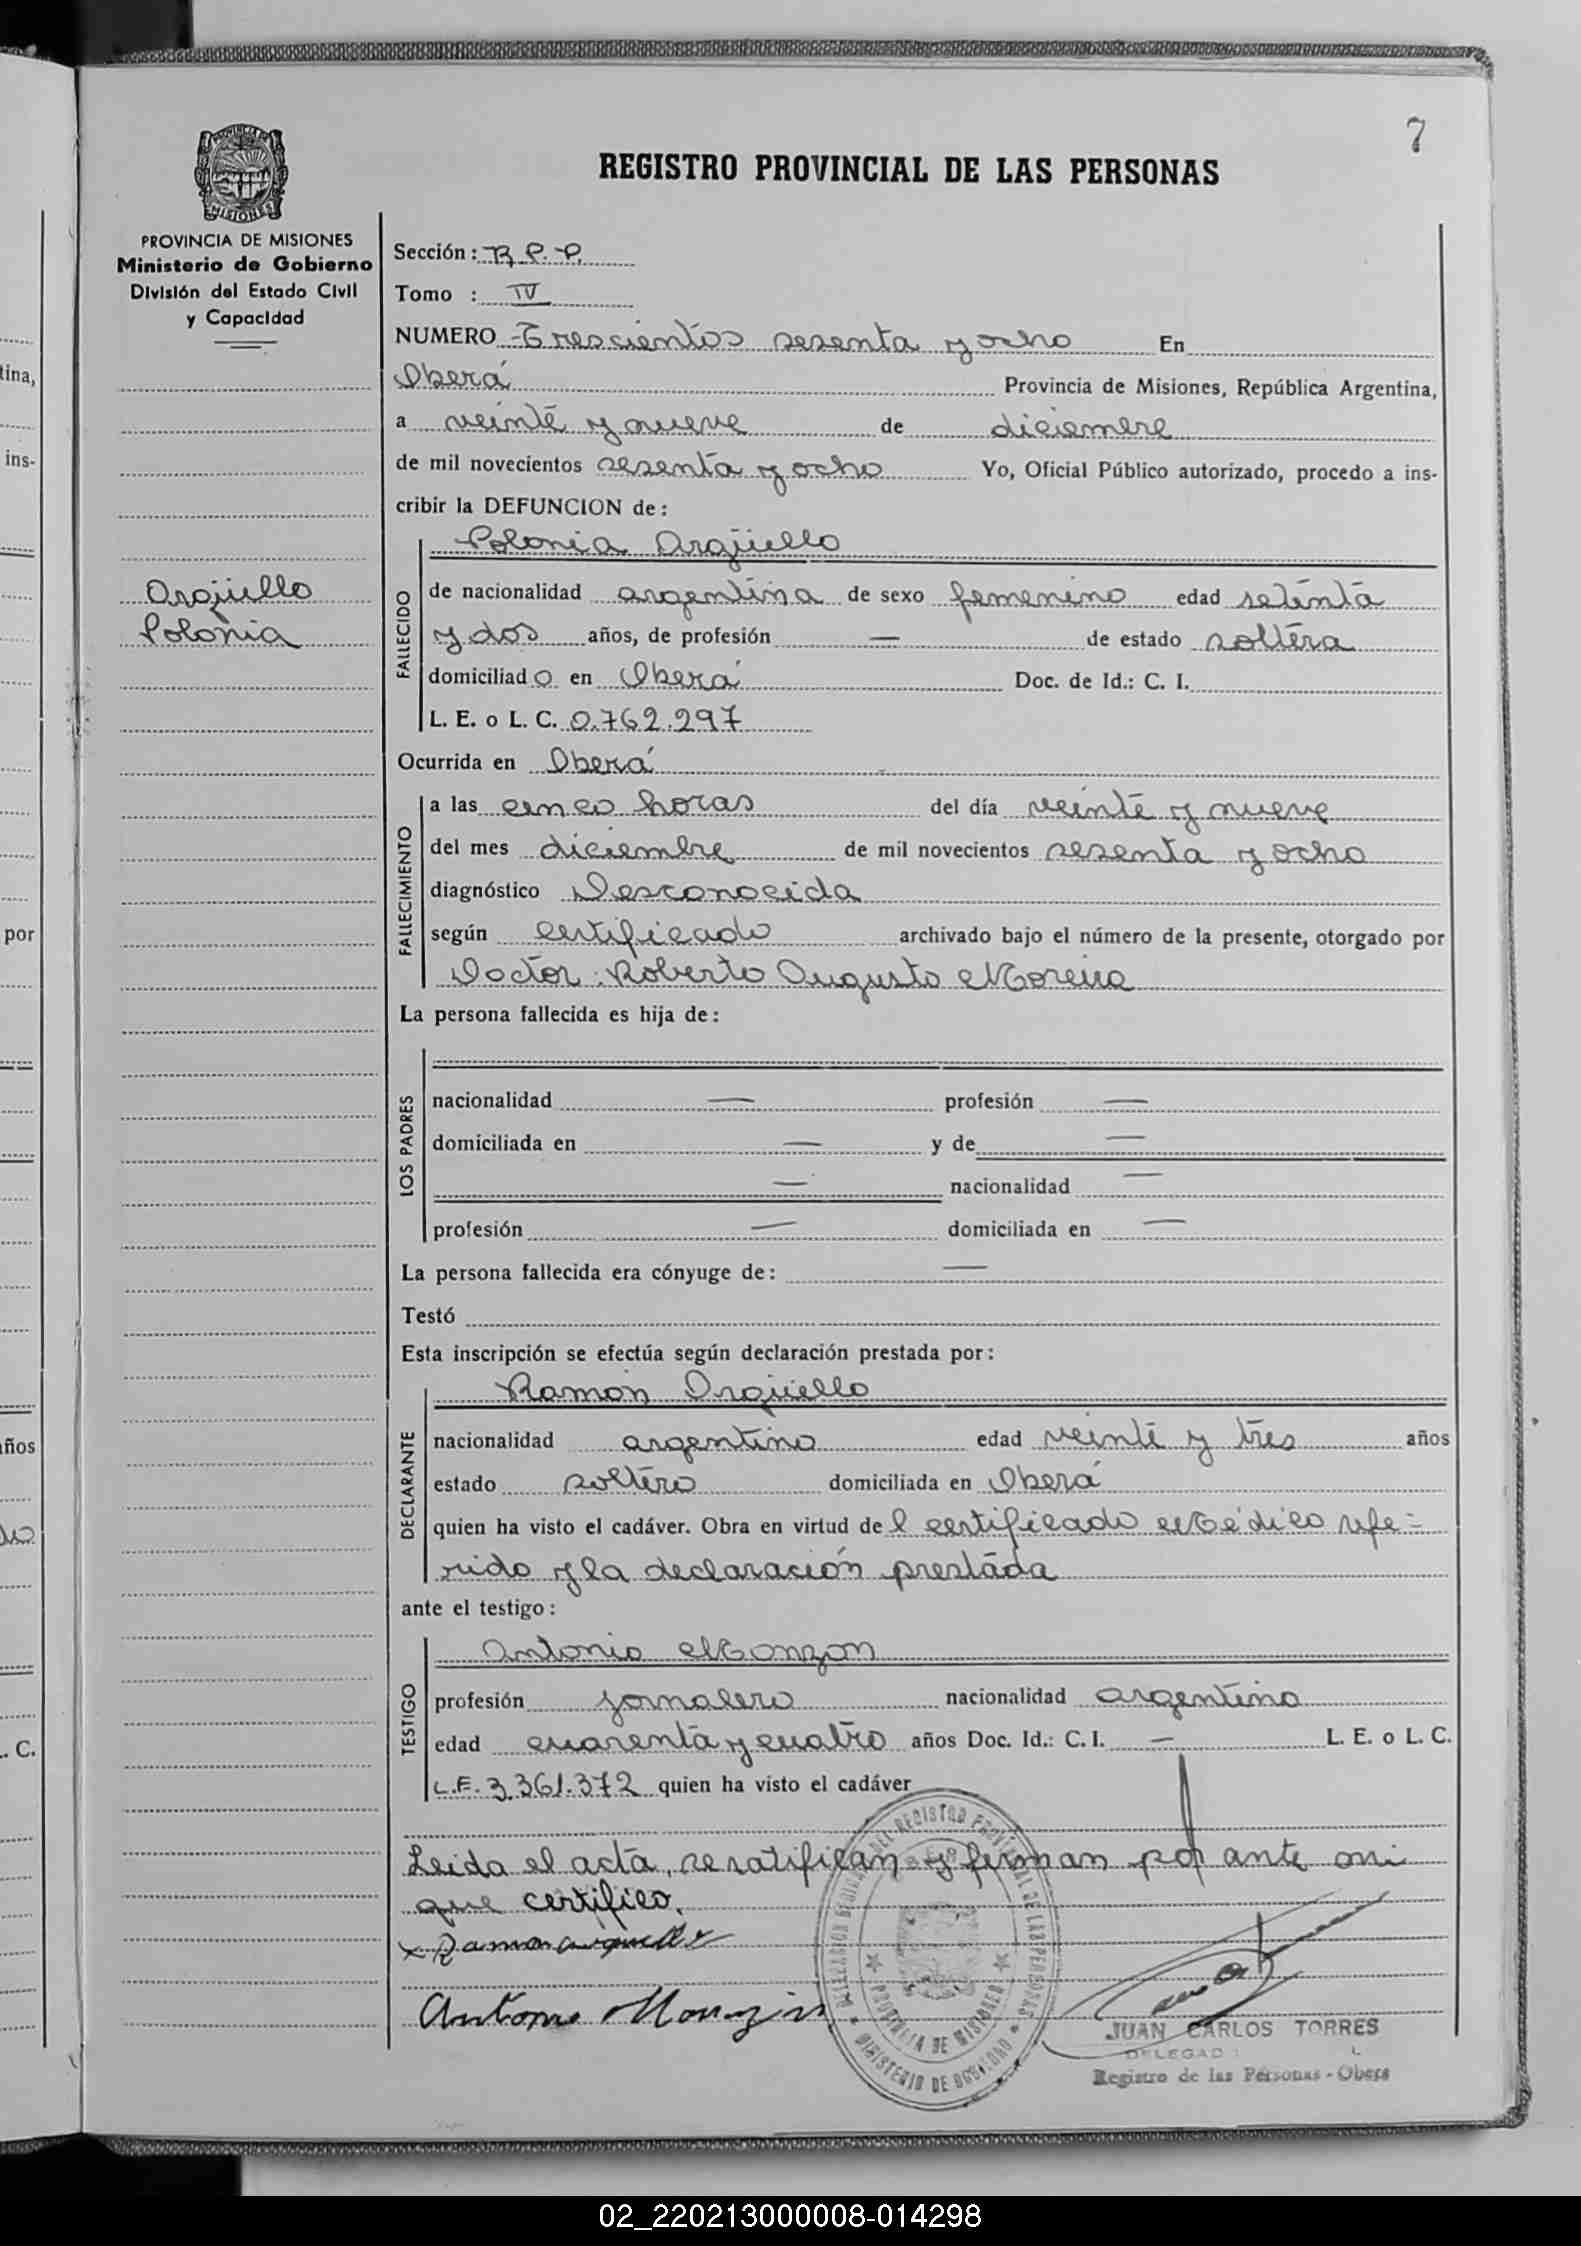 7
REGISTRO PROVINCIAL DE LAS PERSONAS
PROVINCIA DE
MISIONES
PROVINCIA DE MISIONES
Ministerio de Gobierno
División del Estado Civil
y Capacidad
Argüello
Polonia
Sección: R. P. P.
Tomo : IV
NUMERO Trescientos sesenta y ocho En
Oberá Provincia de Misiones, República Argentina,
a veinte y nueve de diciembre
de mil novecientos sesenta y ocho Yo, Oficial Público autorizado, procedo a ins-
cribir la DEFUNCION de:
Polonia Argüello
FALLECIDO
de nacionalidad argentina de sexo femenino edad setenta
y dos años, de profesión — de estado soltera
domiciliado en Oberá Doc. de Id.: C. I.
L. E. o L. C. 0.762.297
Ocurrida en Oberá
FALLECIMIENTO
a las cinco horas del día veinte y nueve
del mes diciembre de mil novecientos sesenta y ocho
diagnóstico Desconocida
según certificado archivado bajo el número de la presente, otorgado por
Doctor: Roberto Augusto Moreira
La persona fallecida es hija de:
LOS PADRES
nacionalidad — profesión —
domiciliada en — y de —
— nacionalidad —
profesión — domiciliada en —
La persona fallecida era cónyuge de: —
Testó
Esta inscripción se efectúa según declaración prestada por:
Ramón Argüello
DECLARANTE
nacionalidad argentino edad veinte y tres años
estado soltero domiciliada en Oberá
quien ha visto el cadáver. Obra en virtud del certificado Médico refe-
rido y la declaración prestada
ante el testigo:
Antonio Monzon
TESTIGO
profesión jornalero nacionalidad argentino
edad cuarenta y cuatro años Doc. Id.: C. I. — L. E. o L. C.
L.E. 3.361.372 quien ha visto el cadáver
Leida el acta, se ratifican y firman por ante mi
que certifico.
x Ramon arguello
Antonio Monzon
REGISTRO PROVINCIAL DE LAS PERSONAS
PROVINCIA DE MISIONES
MINISTERIO DE GOBIERNO
JUAN CARLOS TORRES
Registro de las Personas - Obera
tina,
ins-
por
años
. C.
02_220213000008-014298